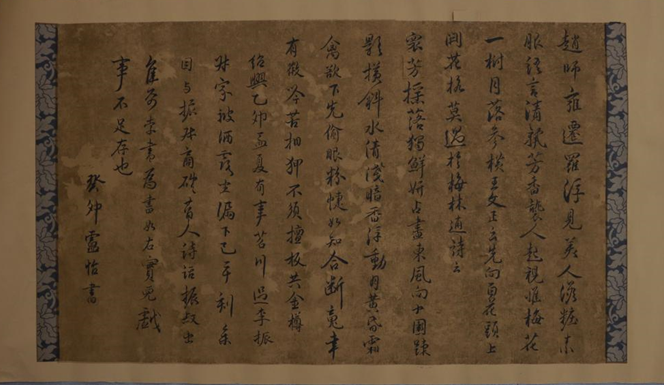 趙師雄遷羅浮見美人淡粧素
服縱言清麗芳香襲人起視惟梅花
一樹月落參橫王文正云先向百花頭上
開花格莫過於梅林逋詩云
衆芳搖落獨鮮妍占盡東風向小園踈
影橫斜水清淺暗香浮動月黃昏霜
禽欲下先偷眼粉蝶如知合斷魂幸
有微吟苦相狎不須檀板共金樽
紹興乙卯孟夏有事苕川過李振
叔家被酒露坐漏下已刻矣
因与振叔商確古人詩話振叔出
索書爲書如右實兒戲
事不足存也
癸卯靈怡書